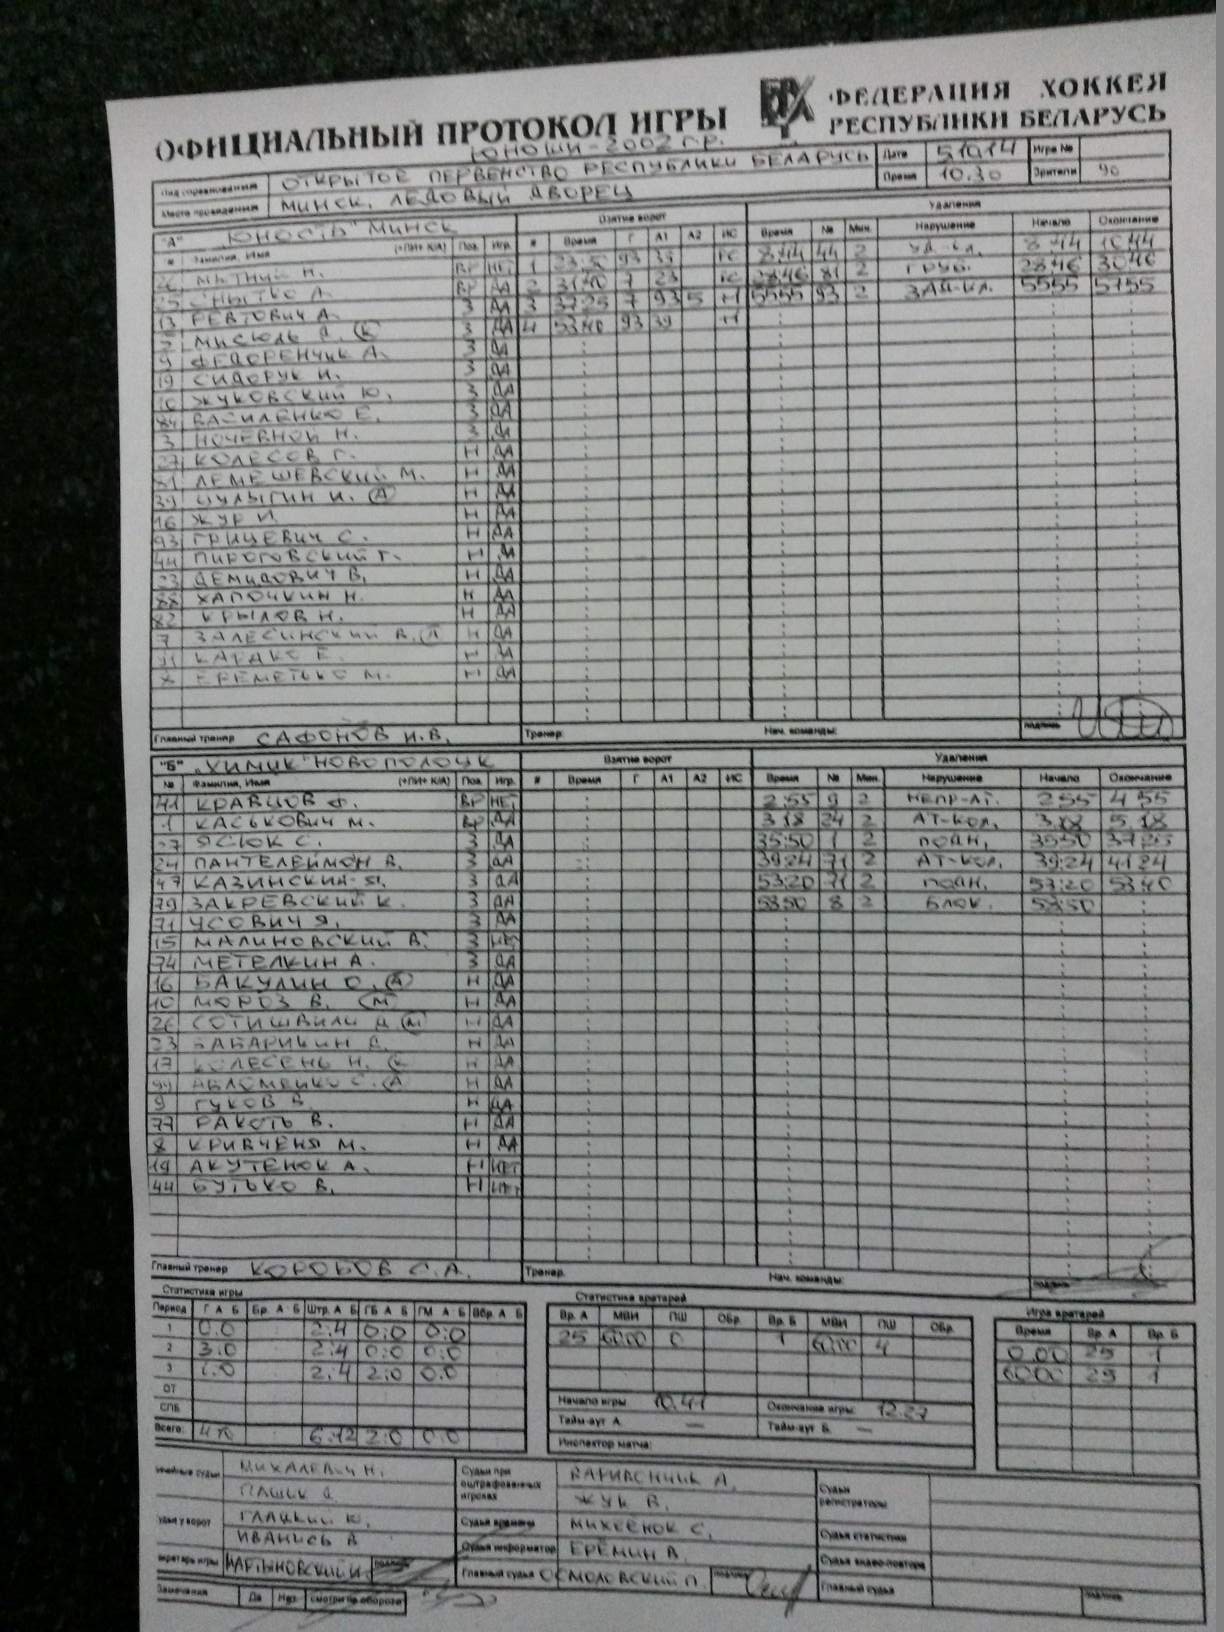 ОФИЦИАЛЬНЫЙ ПРОТОКОЛ ИГРЫ
ФЕДЕРАЦИЯ ХОККЕЯ
РЕСПУБЛИКИ БЕЛАРУСЬ
ЮНОШИ-2002 г.р.
Вид соревнования ОТКРЫТОЕ ПЕРВЕНСТВО РЕСПУБЛИКИ БЕЛАРУСЬ Дата 5.10.14 Игра №
Место проведения МИНСК, ЛЕДОВЫЙ ДВОРЕЦ Время 10.30 Зрители 90
"А" ЮНОСТЬ" МИНСК Взятие ворот Удаления
№ Фамилия, Имя (+ПИ+ К/А) Поз. Игр. # Время Г А1 А2 ИС Время № Мин. Нарушение Начало Окончание
МЫТНИК Н. ВР НЕТ 1 93 39 8:44 44 2 УД-КЛ. 8 44 10 44
25 СНЫТКО А. ВР ДА 2 31:40 7 23 28:46 81 2 ГРУБ. 28 46 30 46
13 РЕВТОВИЧ А. З ДА 3 37:25 7 93 5 55:55 93 2 55 55 57 55
МИСЮЛЬ (К) З ДА 4 53:40 93 39
9 ФЕДОРЕНЧИК А. З ДА
19 СИДОРУК И. З ДА
10 ЖУКОВСКИЙ Ю. З ДА
84 ВАСИЛЕНКО Е. З ДА
3 НОЧЕВНОЙ Н. З ДА
27 КОЛЕСОВ Г. Н ДА
81 ЛЕМЕШЕВСКИЙ М. Н ДА
39 ШУЛЫГИН И. (А) Н ДА
16 ЖУР И. Н ДА
93 ГРИЦЕВИЧ С. Н ДА
44 ПИРОГОВСКИЙ Г. Н ДА
23 ДЕМИДОВИЧ В. Н ДА
88 ХАПОЧКИН Н. Н ДА
82 КРЫЛОВ Н. Н ДА
7 ЗАЛЕСИНСКИЙ В. (А) Н ДА
КАРАКО Е. Н ДА
ЕРЕМЕТЬКО М. Н ДА
Главный тренер САФОНОВ И.В. Тренер: Нач. команды: подпись
"Б" „ХИМИК" НОВОПОЛОЦК Взятие ворот Удаления
№ Фамилия, Имя (+ПИ+ К/А) Поз. Игр. # Время Г А1 А2 ИС Время № Мин. Нарушение Начало Окончание
41 КРАВЦОВ Ф. ВР НЕТ 2:55 9 2 НЕПР-АТ. 2 55 4 55
1 КАСЬКОВИЧ М. ВР ДА 3:18 24 2 АТ-КОЛ. 3:18 5:18
ЯСЮК С. З ДА 35:50 1 2 ПОДН. 35:50 37:25
24 ПАНТЕЛЕЙМОН В. З ДА 39:24 71 2 АТ-КОЛ. 39:24 41 24
47 КАЗИНСКИЙ Я. З ДА 53:20 71 2 ПОДН. 53:20 53:40
79 ЗАКРЕВСКИЙ К. З ДА 58:50 8 2 БЛОК. 58:50
71 УСОВИЧ Я. З ДА
15 МАЛИНОВСКИЙ В. З НЕТ
74 МЕТЕЛКИН А. З ДА
16 БАКУЛИН О. (А) Н ДА
10 МОРОЗ В. (М) Н ДА
26 СОТИШВИЛИ Д. (М) Н ДА
23 БАБАРИКИН Н ДА
17 КОЛЕСЕНЬ Н. (К) Н ДА
99 АВЛОМЕЙКО С. (А) Н ДА
9 ГУКОВ В. Н ДА
77 РАКОТЬ В. Н ДА
8 КРИВЧЕНЯ М. Н ДА
19 АКУТЕНОК А. Н НЕТ
44 БУТЬКО В. Н НЕТ
Главный тренер КОРОБОВ С.А. Тренер. Нач. команды: подпись
Статистика игры Статистика вратарей Игра вратарей
Период Г А Б Бр. А Б Штр. А Б ГБ А Б ГМ А Б Вбр. А Б Вр. А МВИ ПШ Обр. Вр. Б МВИ ПШ Обр. Время Вр. А Вр. Б
1 0:0 2:4 0:0 0:0 25 60:00 0 1 60:00 4 0:00 25 1
2 3:0 2:4 0:0 0:0 60:00 25 1
3 1:0 2:4 2:0 0:0
ОТ Начало игры 10.41 Окончание игры: 12.27
СПБ Тайм-аут А. — Тайм-аут Б. —
Всего: 4:0 6:12 2:0 0:0 Инспектор матча:
Линейные судьи МИХАЛЕВИЧ Н. Судьи при оштрафованных игроках А. Судьи регистраторы
ПАШИК ЖУК В.
Судьи у ворот ГЛАЦКИЙ Ю. Судья времени МИХЕЕНОК С. Судья статистики
ИВАНИСЬ В Судья информатор ЕРЁМИН В. Судья видео-повтора
Секретарь игры МАРТЫНОВСКИЙ И. подпись Главный судья ОСМОЛОВСКИЙ П. подпись Главный судья подпись
Замечания Да Нет смотри на обороте